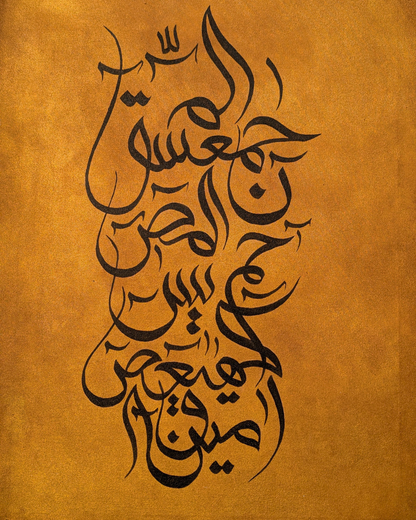 الم
حمعسق
ن
المص
حم
يس
كهيعص
ق
امين